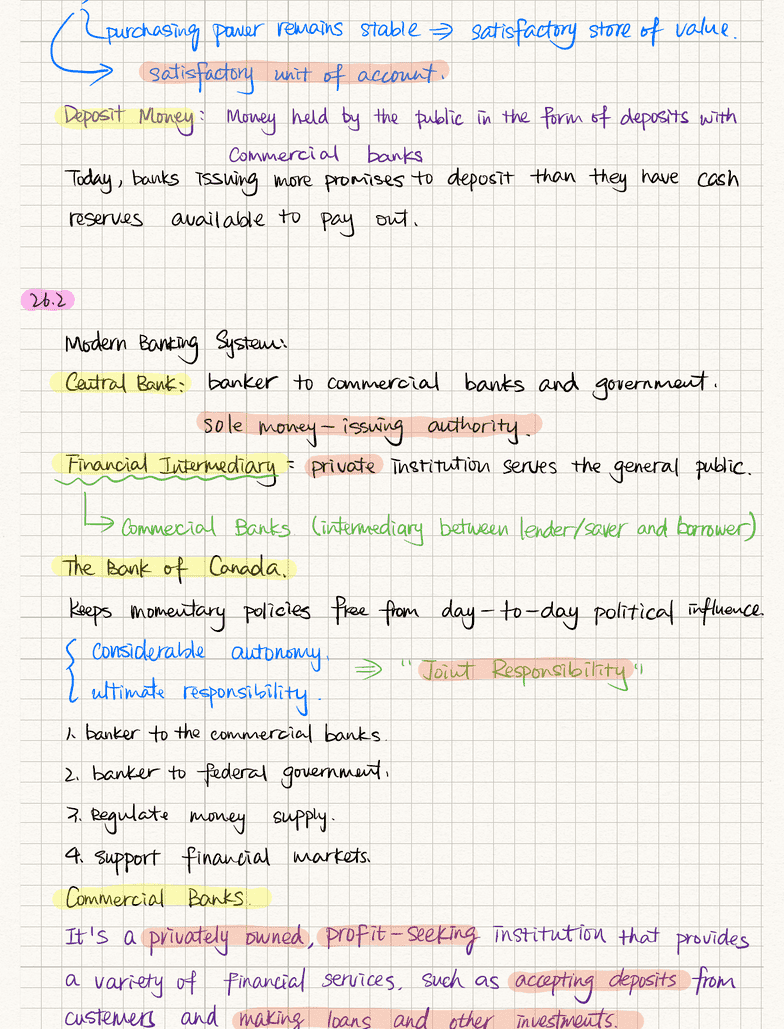 purchasing power remains stable ⇒ satisfactory store of value.
satisfactory unit of account.
Deposit Money: Money held by the public in the form of deposits with
Commercial banks
Today, banks issuing more promises to deposit than they have cash
reserves available to pay out.
26.2
Modern Banking System:
Central Bank: banker to commercial banks and government.
Sole money-issuing authority.
Financial Intermediary = private institution serves the general public.
Commecial Banks (intermediary between lender/saver and borrower)
The Bank of Canada.
Keeps momentary policies free from day-to-day political influence.
{ considerable autonomy. ⇒ "Joint Responsibility"
ultimate responsibility.
1. banker to the commercial banks.
2. banker to federal government.
3. Regulate money supply.
4. support financial markets.
Commercial Banks.
It's a privately owned, profit-seeking institution that provides
a variety of financial services, such as accepting deposits from
custemers and making loans and other investments.